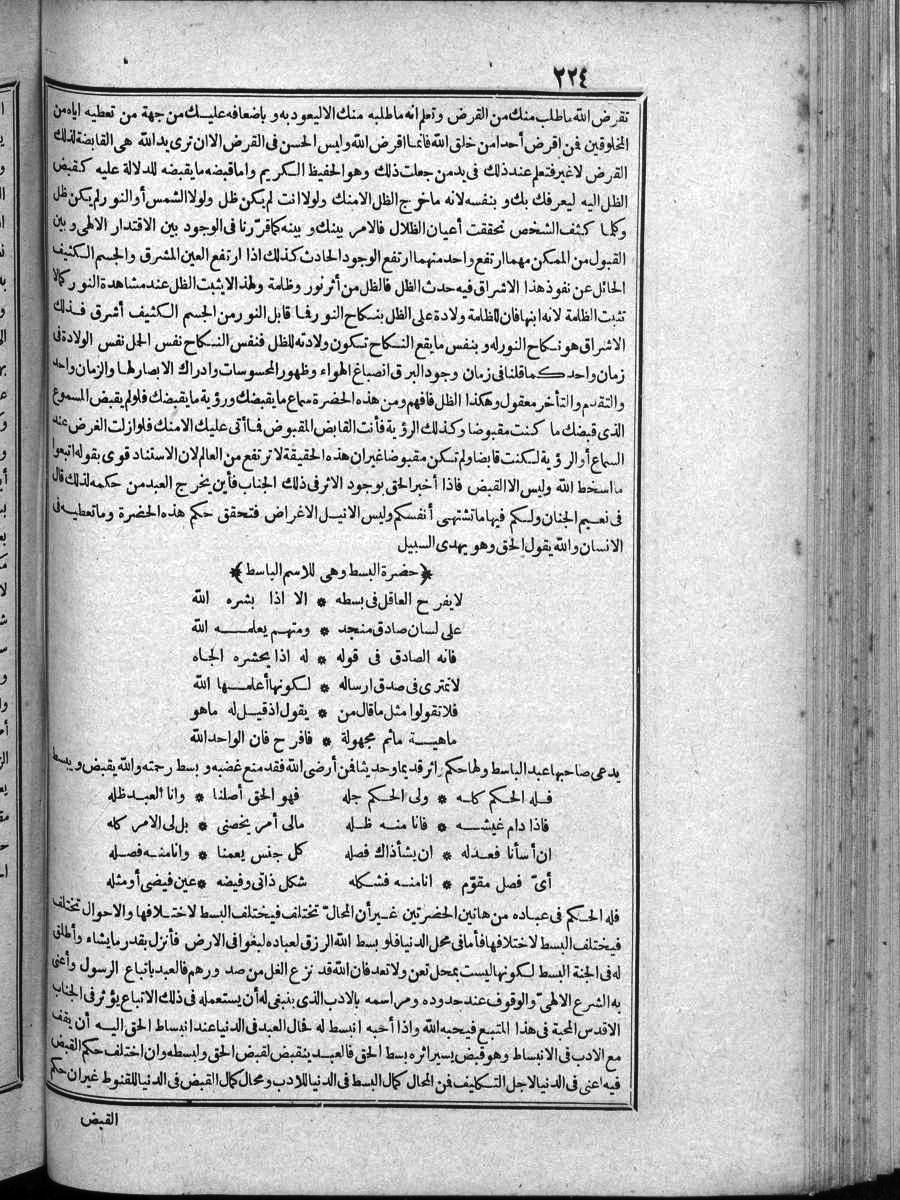 ٢٢٤
تقرض الله ما طلب منك من القرض وتعلم انه ما طلبه منك الا ليعود به وباضعافه عليك من جهة من تعطيه اياه من
المخلوقين فمن اقرض أحدا من خلق الله فانما اقرض الله وليس الحسن فى القرض الا ان ترى يد الله هى القابضة لذلك
القرض لا غير فتعلم عند ذلك فى يد من جعلت ذلك وهو الحفيظ الكريم واما قبضه ما يقبضه للدلالة عليه كقبض
الظل اليه ليعرفك بك وبنفسه لانه ما خرج الظل الا منك ولولا انت لم يكن ظل ولولا الشمس أو النور لم يكن ظل
وكلما كثف الشخص تحققت أعيان الظلال فالامر بينك وبينه كما قرّرنا فى الوجود بين الاقتدار الالهى وبين
القبول من الممكن مهما ارتفع واحد منهما ارتفع الوجود الحادث كذلك اذا ارتفع العين المشرق والجسم الكثيف
الحائل عن نفوذ هذا الاشراق فيه حدث الظل فالظل من أثر نور وظلمة ولهذا لا يثبت الظل عند مشاهدة النور كمالا
تثبت الظلمة لانه ابنها فان للظلمة ولادة على الظل بنكاح النور فما قابل النور من الجسم الكثيف أشرق فذلك
الاشراق هو نكاح النور له وبنفس ما يقع النكاح تكون ولادته للظل فنفس النكاح نفس الحمل نفس الولادة فى
زمان واحد كما قلنا فى زمان وجود البرق انصباغ الهواء وظهور المحسوسات وادراك الابصار لها والزمان واحد
والتقدم والتأخر معقول وهكذا الظل فافهم ومن هذه الحضرة سماع ما يقبضك ورؤية ما يقبضك فلو لم يقبض المسموع
الذى قبضك ما كنت مقبوضا وكذلك الرؤية فأنت القابض المقبوض فما أتى عليك الا منك فلو ازلت الغرض عند
السماع أو الرؤية لكنت قابضا ولم تكن مقبوضا غير ان هذه الحقيقة لا ترتفع من العالم لان الاستناد قوى بقوله اتبعوا
ما اسخط الله وليس الا القبض فاذا أخبر الحق بوجود الاثر فى ذلك الجناب فأين يخرج العبد من حكمه لذلك قال
فى نعيم الجنان ولكم فيها ما تشتهى أنفسكم وليس الا نيل الاغراض فتحقق حكم هذه الحضرة وما تعطيه فى
الانسان والله يقول الحق وهو يهدى السبيل
﴿حضرة البسط وهى للاسم الباسط﴾
لا يفرح العاقل فى بسطه * الا اذا بشره الله
على لسان صادق منجد * ومتهم يعلمه الله
فانه الصادق فى قوله * له اذا يحشره الجاه
لا تمترى فى صدق ارساله * لكونها أعلمها الله
فلا تقولوا مثل ما قال من * يقول اذ قيل له ماهو
ماهية ما ثم مجهولة * فافرح فان الواحد الله
يدعى صاحبها عبد الباسط ولها حكم واثر قديما وحديثا فمن أرضى الله فقد منع غضبه وبسط رحمته والله يقبض ويبسط
فله الحكم كله * ولى الحكم جله فهو الحق أصلنا * وانا العبد ظله
فاذا دام غيثه * فانا منه ظله مالى أمر يخصنى * بل لى الامر كله
ان أسأنا فعدله * ان يشأ ذاك فصله كل جنس يعمنا * وانا منه فصله
أىّ فصل مقوّم * انا منه فشكله شكل ذاتى وفيضه * عين فيضى أو مثله
فله الحكم فى عباده من هاتين الحضرتين غير أن المحالّ تختلف فيختلف البسط لاختلافها والاحوال تختلف
فيختلف البسط لاختلافها فأما فى محل الدنيا فلو بسط الله الرزق لعباده لبغوا فى الارض فأنزل بقدر ما يشاء وأطلق
له فى الجنة البسط لكونها ليست بمحل تعن ولا تعد فان الله قد نزع الغل من صدورهم فالعبد باتباع الرسول وأعنى
به الشرع الالهىّ والوقوف عند حدوده ومراسمه بالادب الذى ينبغى له أن يستعمله فى ذلك الاتباع يؤثر فى الجناب
الاقدس المحبة فى هذا المتبع فيحبه الله واذا أحبه انبسط له فحال العبد فى الدنيا عند انبساط الحق اليه أن يقف
مع الادب فى الانبساط وهو قبض يسير اثره بسط الحق فالعبد ينقبض لقبض الحق ولبسطه وان اختلف حكم القبض
فيه اعنى فى الدنيا لاجل التكليف فمن المحال كمال البسط فى الدنيا للادب ومحال كمال القبض فى الدنيا للقنوط غير ان حكم
القبض